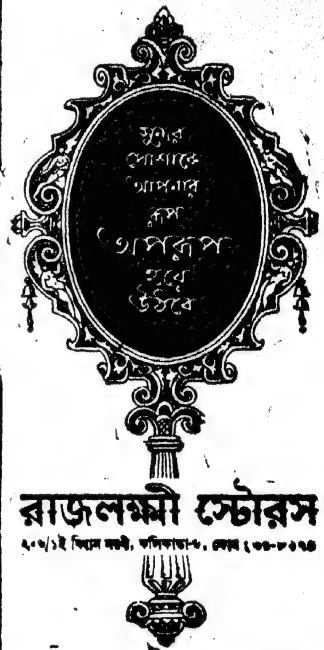 সুন্দর
পোশাকে
আপনার
রূপ
অপরূপ
হয়ে
উঠবে
রাজলক্ষ্মী স্টোরস
২০৬/১ই বিধান সরণী, কলিকাতা-৬, ফোন :